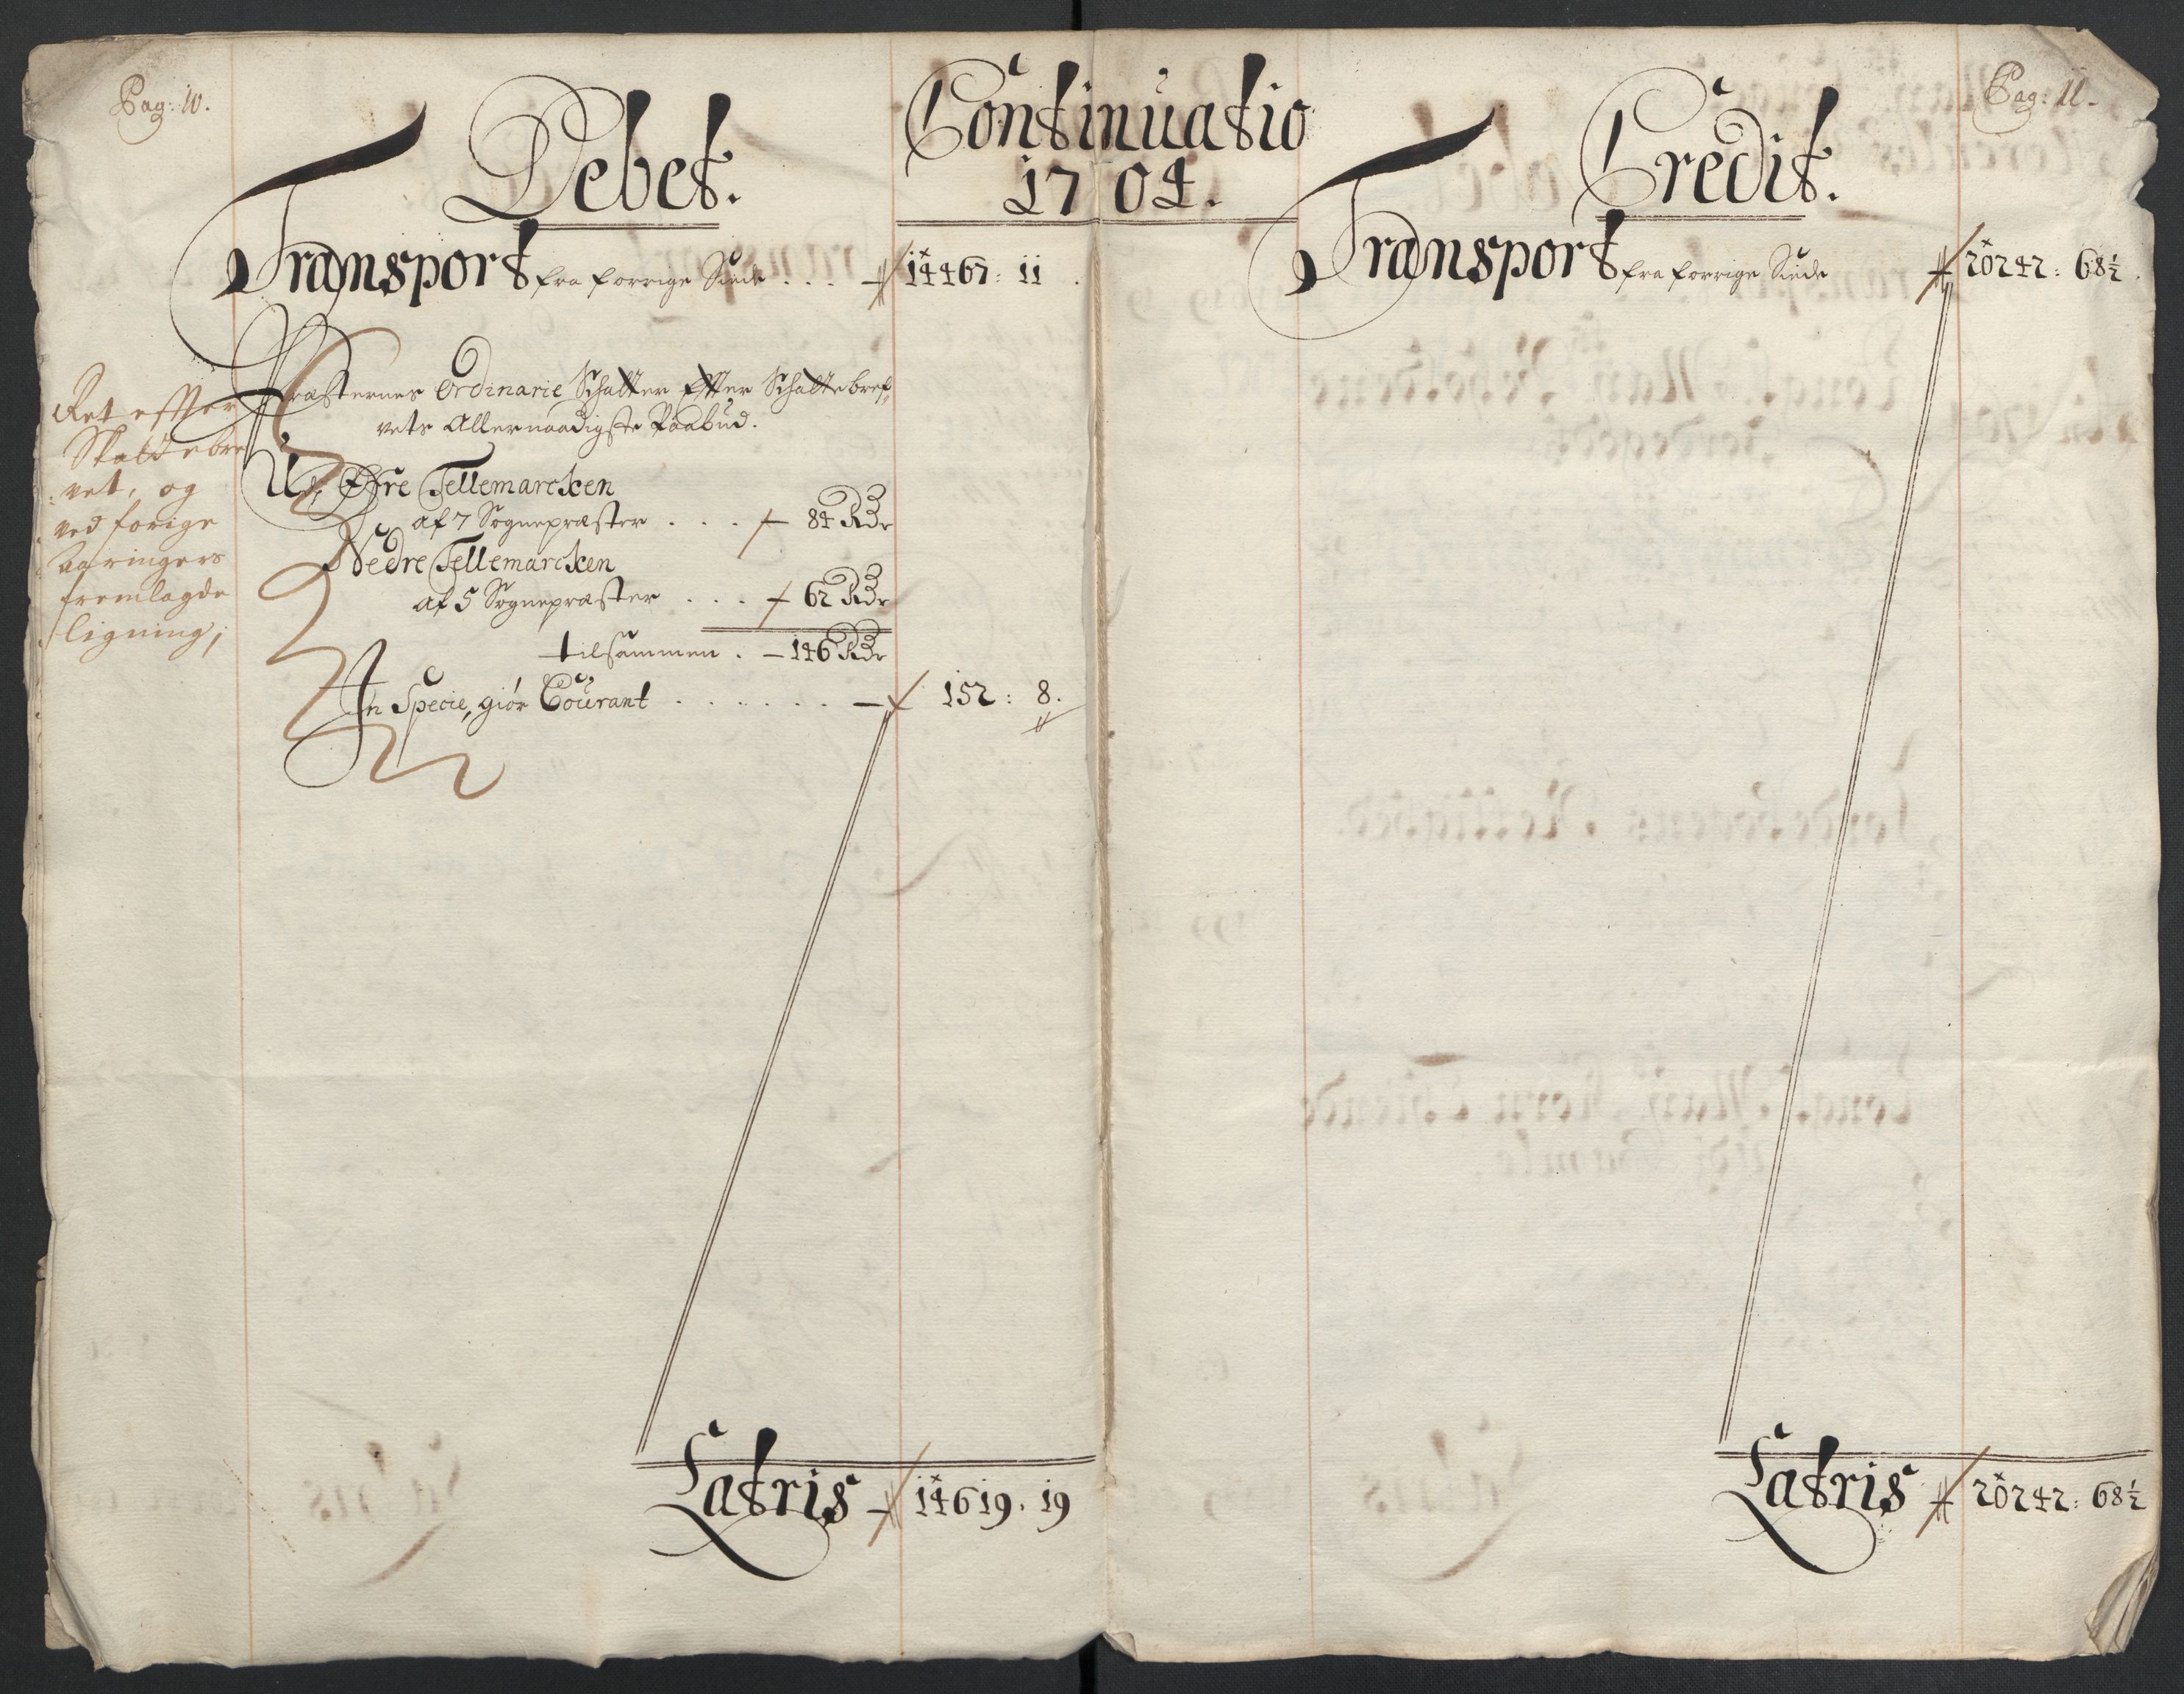 Pag: 10.
Debet.
Continuatio
1704.
Transport fra forrige Siide . . . 14467: 11
Præsternes Ordinarie Schatter Efter Schattebref„
vets Allernaadigste Paabud.
Ret effter
Skattebre
vet, og
ved forige
aaringers
fremlagde
ligning;
Udj Øfre Tellemarcken
af 7 Sognepræster . . . 84 Rdr
Nedre Tellemarcken
af 5 Sognepræster . . . 62 Rdr
tilsammen . 146 Rdr
In Specie, giør Courant . . . . . . . 152: 8.
Latris 14619. 19
Pag: 11.
Credit.
Transport fra forrige Siide 20242: 68½.
Latris 20242: 68½